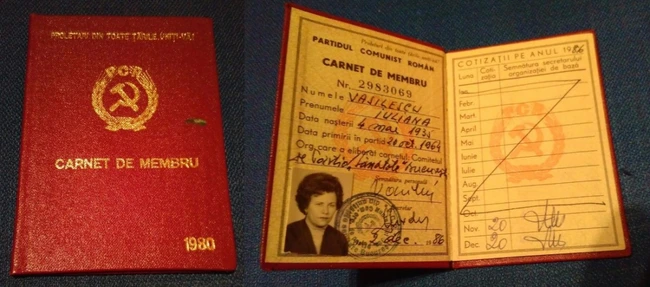 PROLETARI DIN TOATE ȚĂRILE, UNIȚI-VĂ!
PCR
CARNET DE MEMBRU
1980
Proletari din toate țările, uniți-vă!
PARTIDUL COMUNIST ROMÂN
CARNET DE MEMBRU
Nr. 2983069
Numele VASILESCU
Prenumele IULIANA
Data nașterii 4 mai 1935
Data primirii în partid
Org. care a eliberat carnetul: Comitetul
Semnătura personală
5 dec. 1986
COTIZAȚII PE ANUL 1986
Luna Cotizația Semnătura secretarului organizației de bază
Ian.
Febr.
Mart.
April.
Mai
Iunie
Iulie
Aug.
Sept.
Oct.
Nov. 20
Dec. 20
PCR